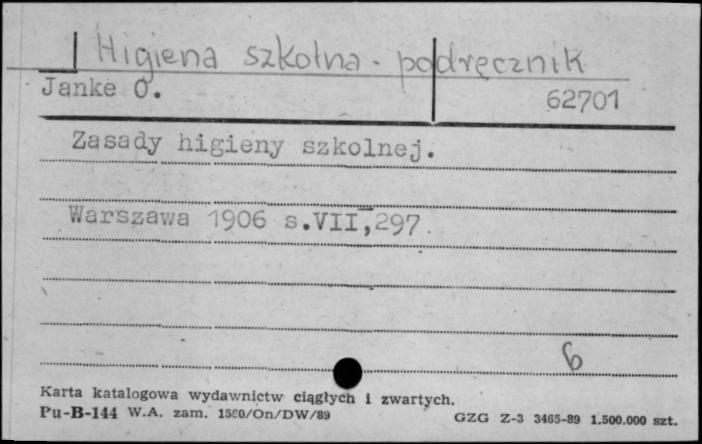 Higiena szkolna - podręcznik
Janke O.
62701
Zasady higieny szkolnej.
Warszawa 1906 s.VII,297.
6
Karta katalogowa wydawnictw ciągłych i zwartych.
Pu-B-144 W.A. zam. 1560/On/DW/89
GZG Z-3 3465-89 1.500.000 szt.